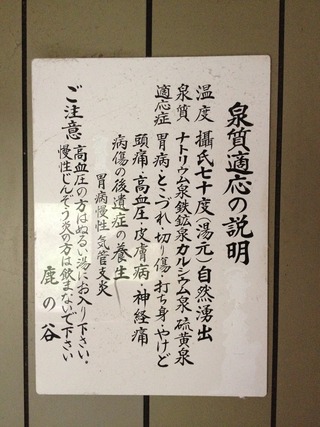 泉質適応の説明
温度 攝氏七十度(湯元)自然湧出
泉質 ナトリウム泉鉄鉱泉カルシウム泉硫黄泉
適応症 胃病・とこづれ・切り傷・打ち身・やけど
頭痛・高血圧・皮膚病・神経痛
病傷の後遺症の養生
胃腸慢性気管支炎
ご注意 高血圧の方はぬるい湯にお入り下さい。
慢性じんぞう炎の方は飲まないで下さい
鹿の谷